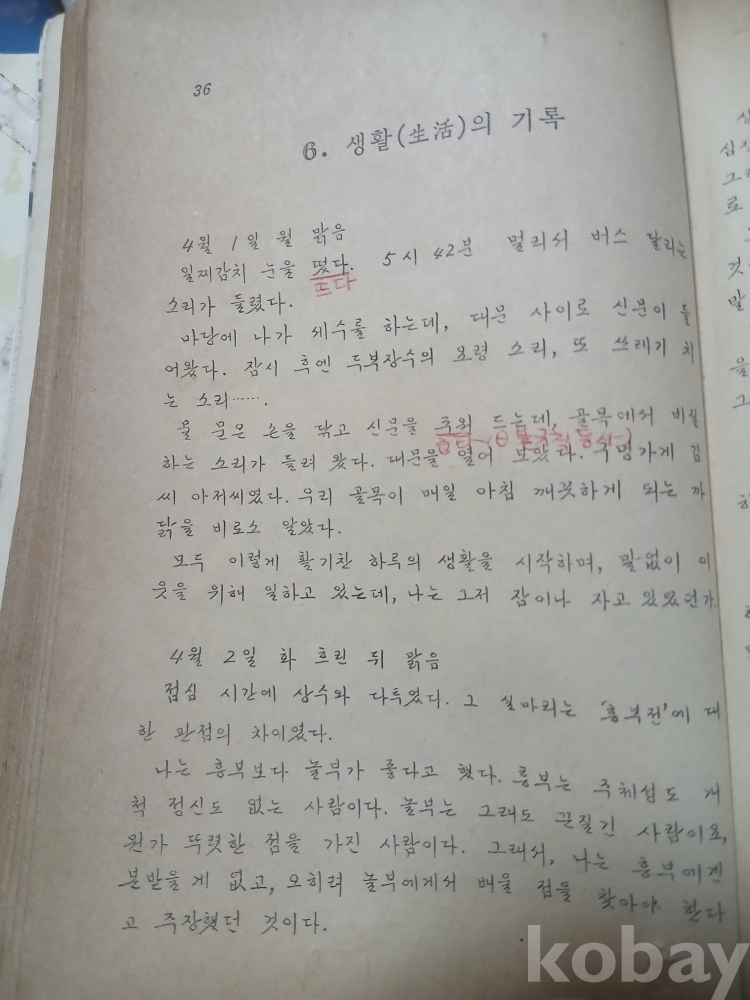 36
6. 생활(生活)의 기록
4월 1일 월 맑음
일찌감치 눈을 떴다. 5시 42분 멀리서 버스 달리는
뜨다
소리가 들렸다.
마당에 나가 세수를 하는데, 대문 사이로 신문이 들
어왔다. 잠시 후엔 두부장수의 요령 소리, 또 쓰레기 치
는 소리…….
물 묻은 손을 닦고 신문을 주워 드는데, 골목에서 비질
하는 소리가 들려 왔다. 대문을 열어 보았다. 구멍가게 김
씨 아저씨였다. 우리 골목이 매일 아침 깨끗하게 되는 까
닭을 비로소 알았다.
모두 이렇게 활기찬 하루의 생활을 시작하며, 말없이 이
웃을 위해 일하고 있는데, 나는 그저 잠이나 자고 있었던가.
4월 2일 화 흐린 뒤 맑음
점심 시간에 상수와 다투었다. 그 실마리는 '흥부전'에 대
한 관점의 차이였다.
나는 흥부보다 놀부가 좋다고 했다. 흥부는 주체성도 개
척 정신도 없는 사람이다. 놀부는 그래도 끈질긴 사람이요,
뭔가 뚜렷한 점을 가진 사람이다. 그래서, 나는 흥부에겐
본받을 게 없고, 오히려 놀부에게서 배울 점을 찾아야 한다
고 주장했던 것이다.
kobay